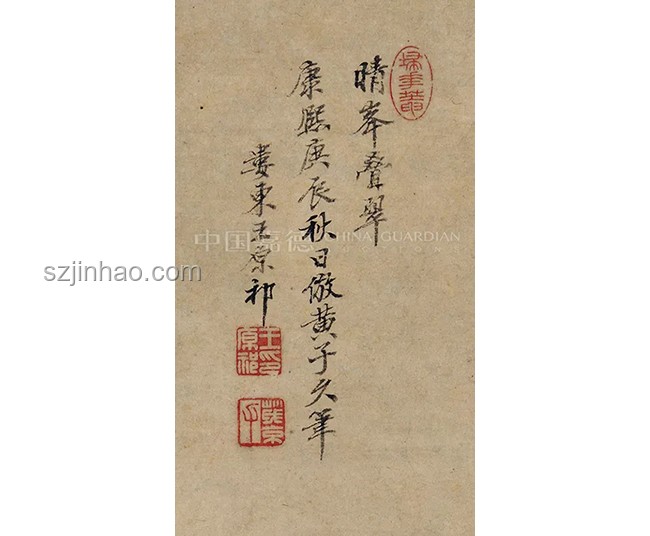 晴峯叠翠
康熙庚辰秋日倣黄子久筆
婁東王原祁
掃花菴
王原祁印
麓臺
中国嘉德 CHINA GUARDIAN
szjinhao.com